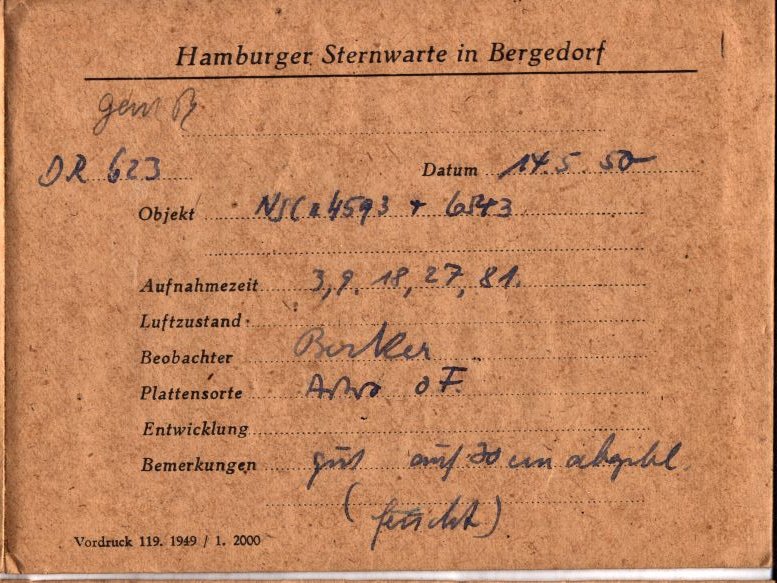 Hamburger Sternwarte in Bergedorf
DR 623
Datum 14.5.50
Objekt 4593 + 6543
Aufnahmezeit 3, 9, 18, 27, 81.
Luftzustand
Beobachter
Plattensorte Astro
Entwicklung
Bemerkungen gut auf 30 cm abgebl.
(feucht)
Vordruck 119. 1949 / 1. 2000